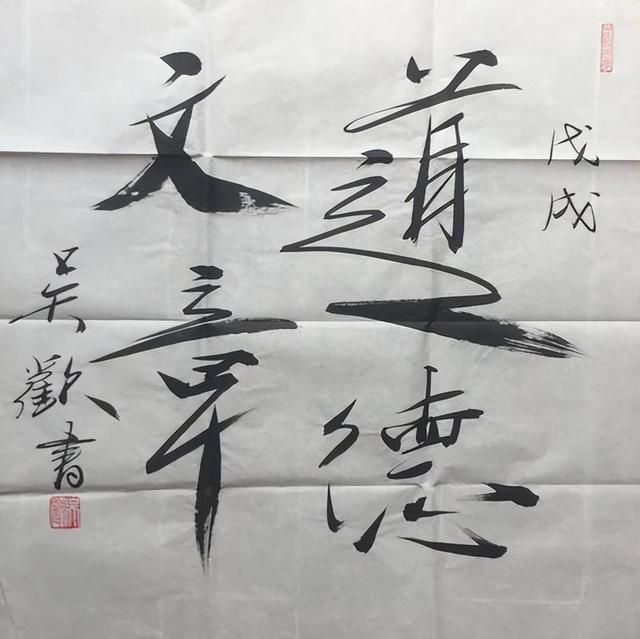 戊戌
道德
文章
吳歡書